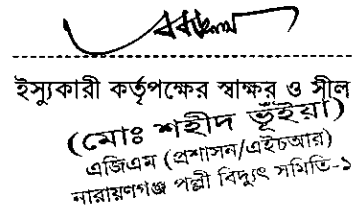 ইস্যুকারী কর্তৃপক্ষের স্বাক্ষর ও সীল
(মোঃ শহীদ ভূঁইয়া)
এজিএম (প্রশাসন/এইচআর)
নারায়ণগঞ্জ পল্লী বিদ্যুৎ সমিতি-১